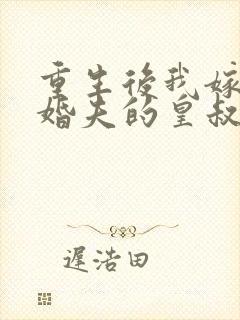 重生後我嫁
婚夫的皇叔
遲浩田